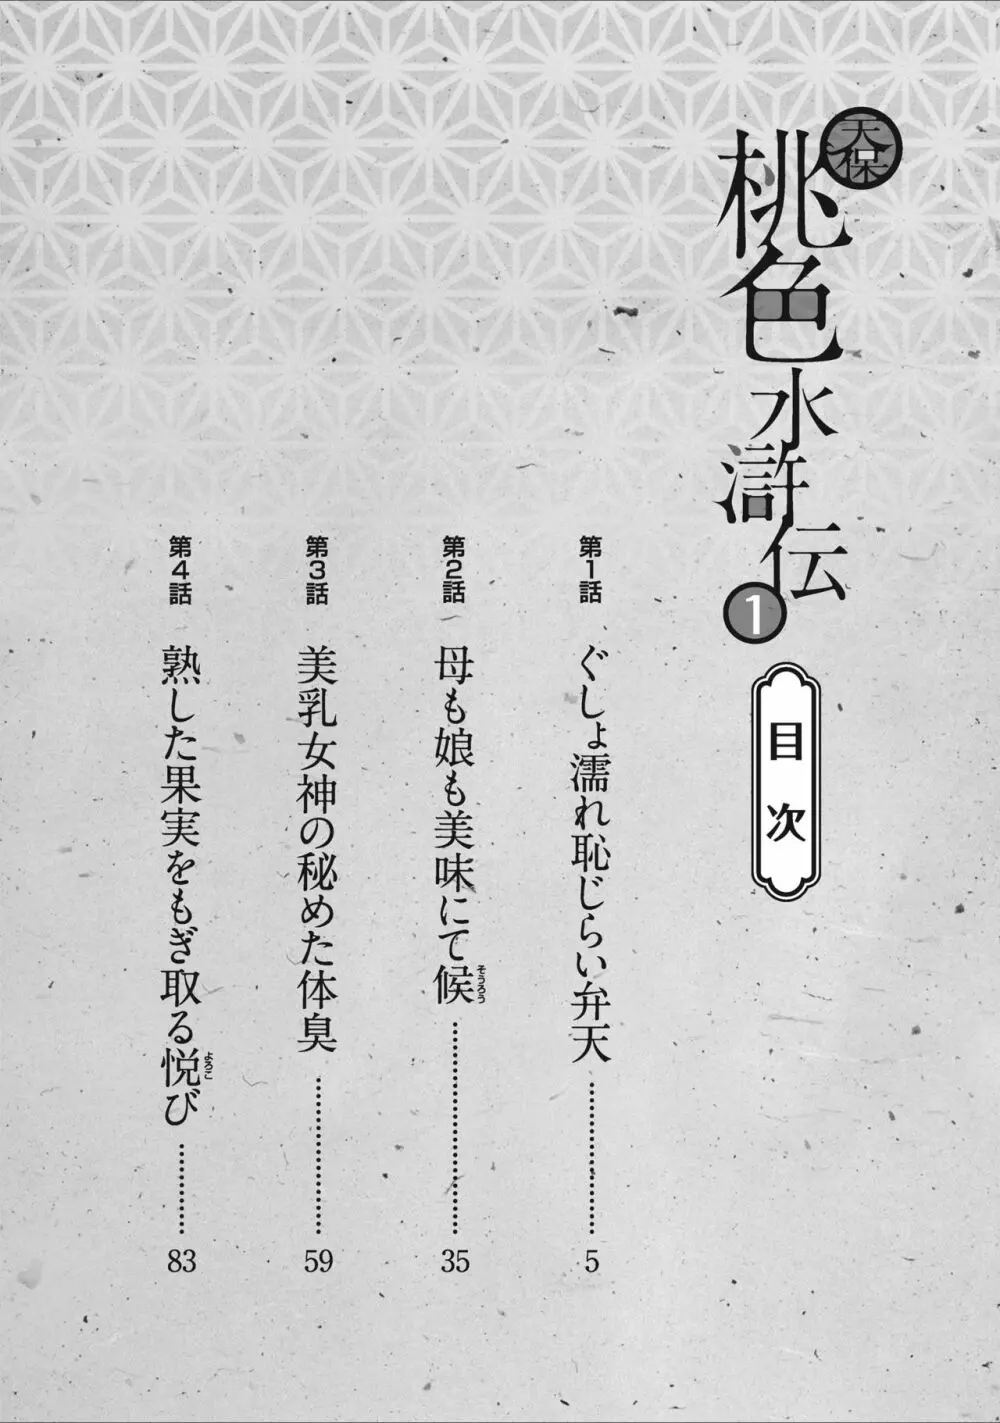 天保
桃色水滸伝
1
目次
第1話 ぐしょ濡れ恥じらい弁天…………… 5
第2話 母も娘も美味にて候…………………… 35
そうろう
第3話 美乳女神の秘めた体臭…………… 59
第4話 熟した果実をもぎ取る悦び……… 83
よろこ